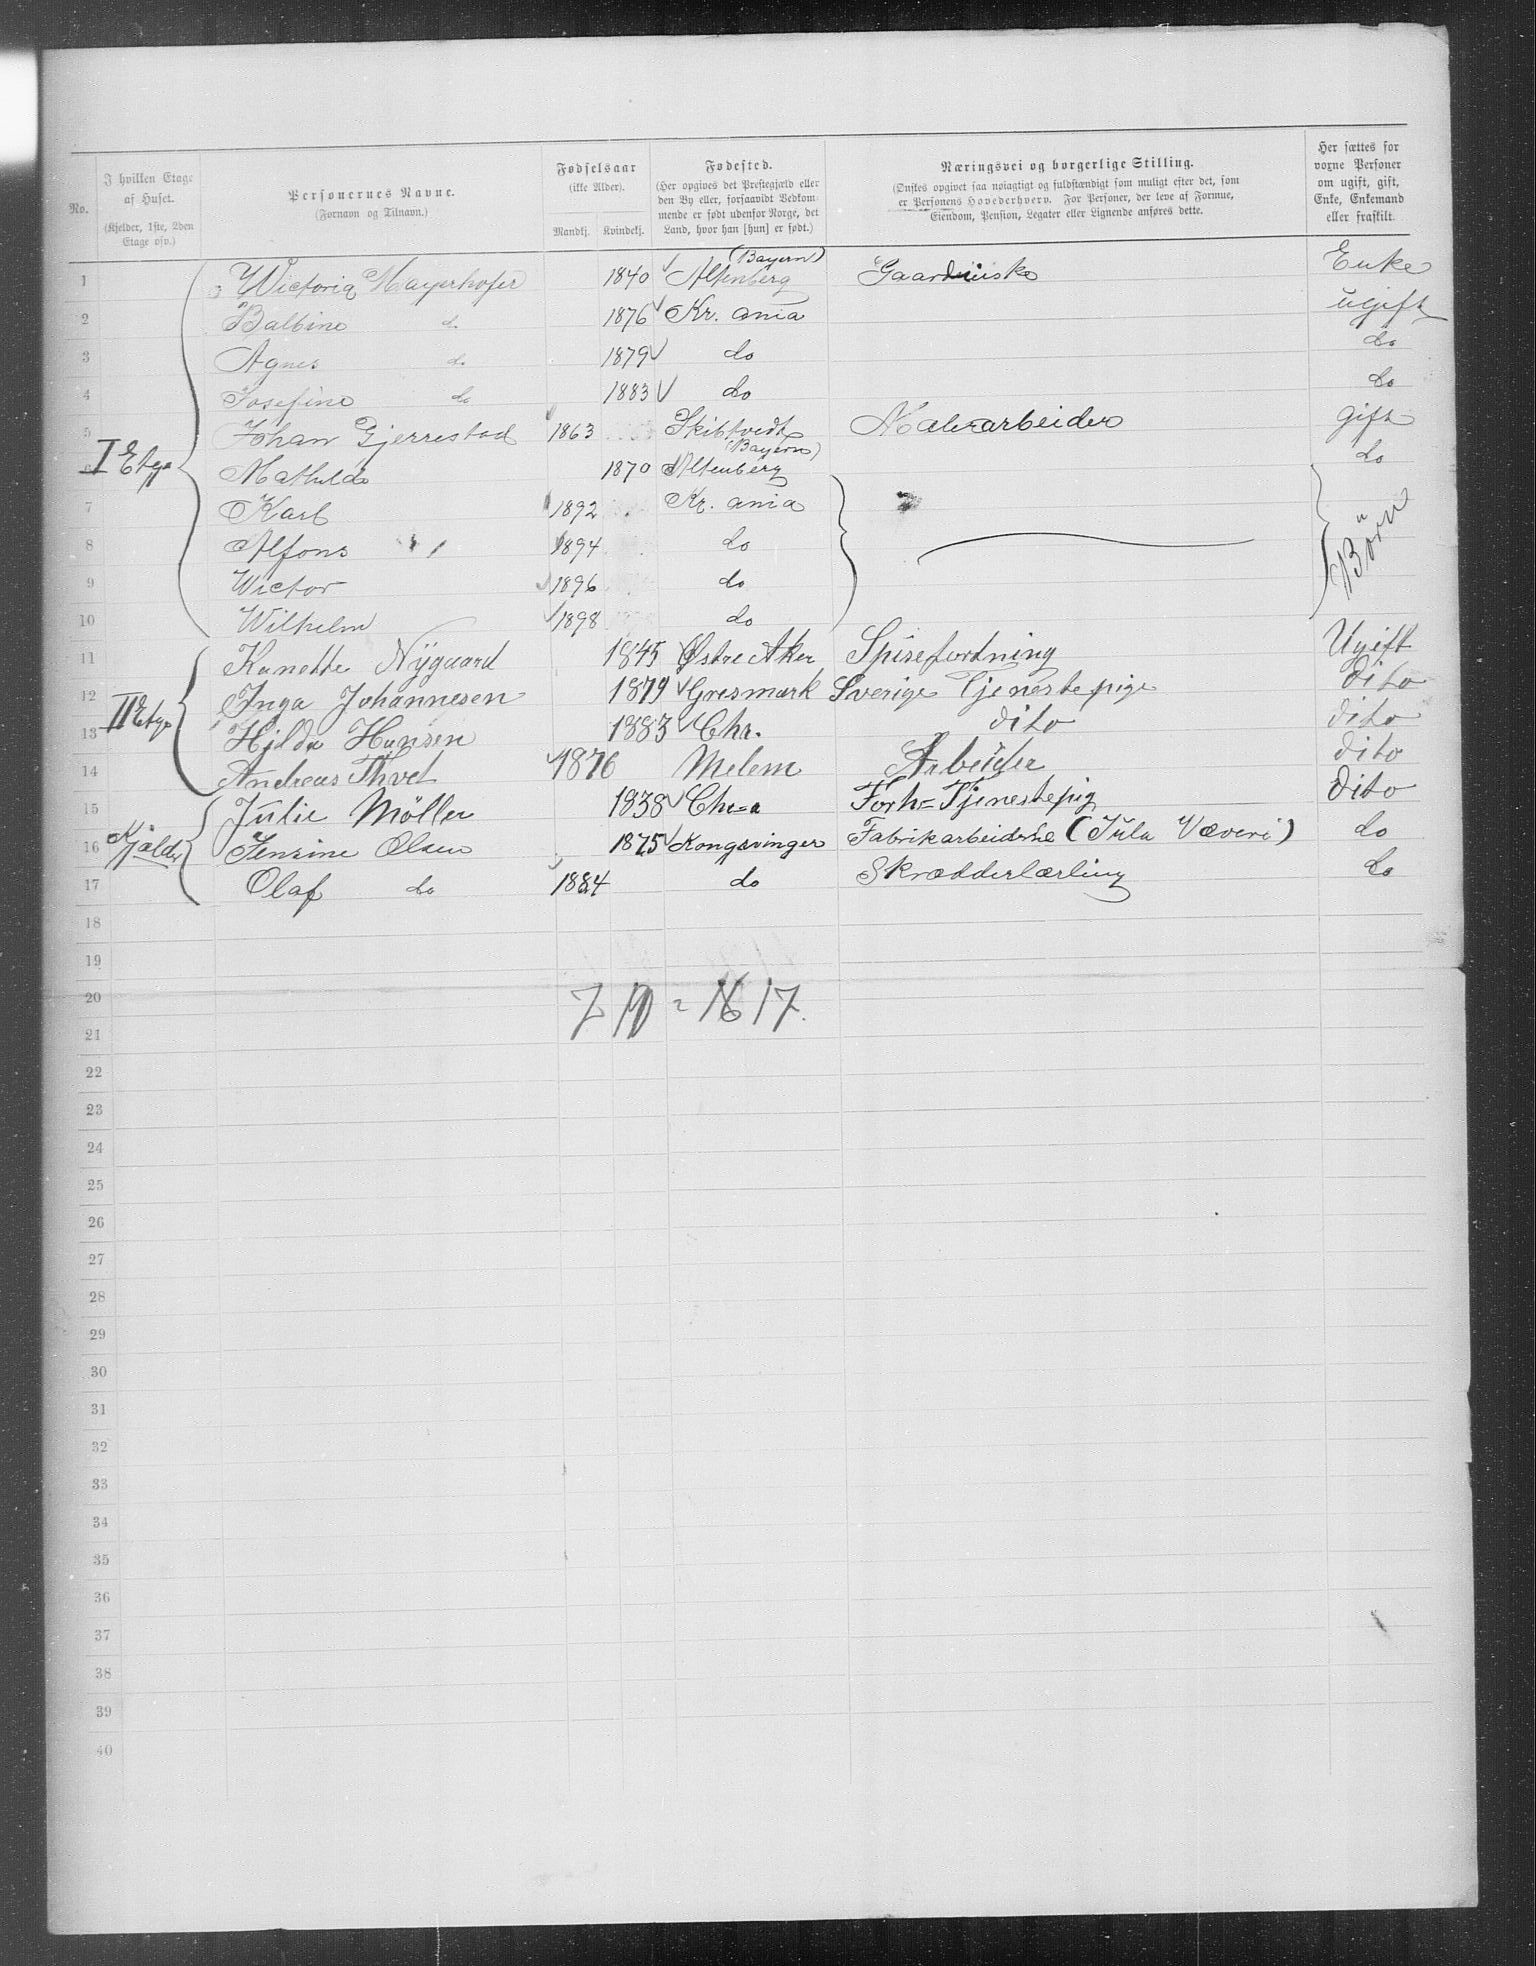 No.
I hvilken Etage af Huset.
(Kjelder, 1ste, 2den Etage osv.)
Personernes Navne.
(Fornavn og Tilnavn.)
Fødselsaar
(ikke Alder).
Mandkj. Kvindekj.
Fødested.
(Her opgives det Prestegjæld eller
den By eller, forsaavidt Vedkom-
mende er født udenfor Norge, det
Land, hvor han [hun] er født.)
Næringsvei og borgerlige Stilling.
(Ønskes opgivet saa nøiagtigt og fuldstændigt som muligt efter det, som
er Personens Hovederhverv. For Personer, der leve af Formue,
Eiendom, Pension, Legater eller Lignende anføres dette.
Her sættes for
voxne Personer
om ugift, gift,
Enke, Enkemand
eller fraskilt.
1 Wictoria Mayerhofer 1840 Altenberg (Bayern) Enke
2 Balbine do 1876 Kr.ania ugift
3 Agnes do 1879 do do
4 Josefine do 1883 do do
I Etge
5 Johan Gjerrestad 1863 Skibtvedt Malerarbeider gift
Mathilde 1870 Altenberg (Bayern) do
7 Karl 1892 Kr.ania
8 Alfons 1894 do
9 Wictor 1896 do
10 Wilhelm 1898 do
Börn
11 Nygaard 1845 Østre Aker Spiseforetning Ugift
II Etge
12 Inga Johannesen 1879 Gresmark Sverige Tjenestepige dito
13 Hilda Hansen 1883 Chr. dito dito
14 Andreas 1876 Melem Arbeider dito
15 Julie Möller 1838 Chr=a Forh= Tjenestepig dito
Kjælder
16 Jensine Olsen 1875 Kongsvinger Fabrikarbeiderske (Jula Væveri) do
17 Olaf do 1884 do Skrædderlærling do
18
19
20
7 10 = 16 17.
21
22
23
24
25
26
27
28
29
30
31
32
33
34
35
36
37
38
39
40